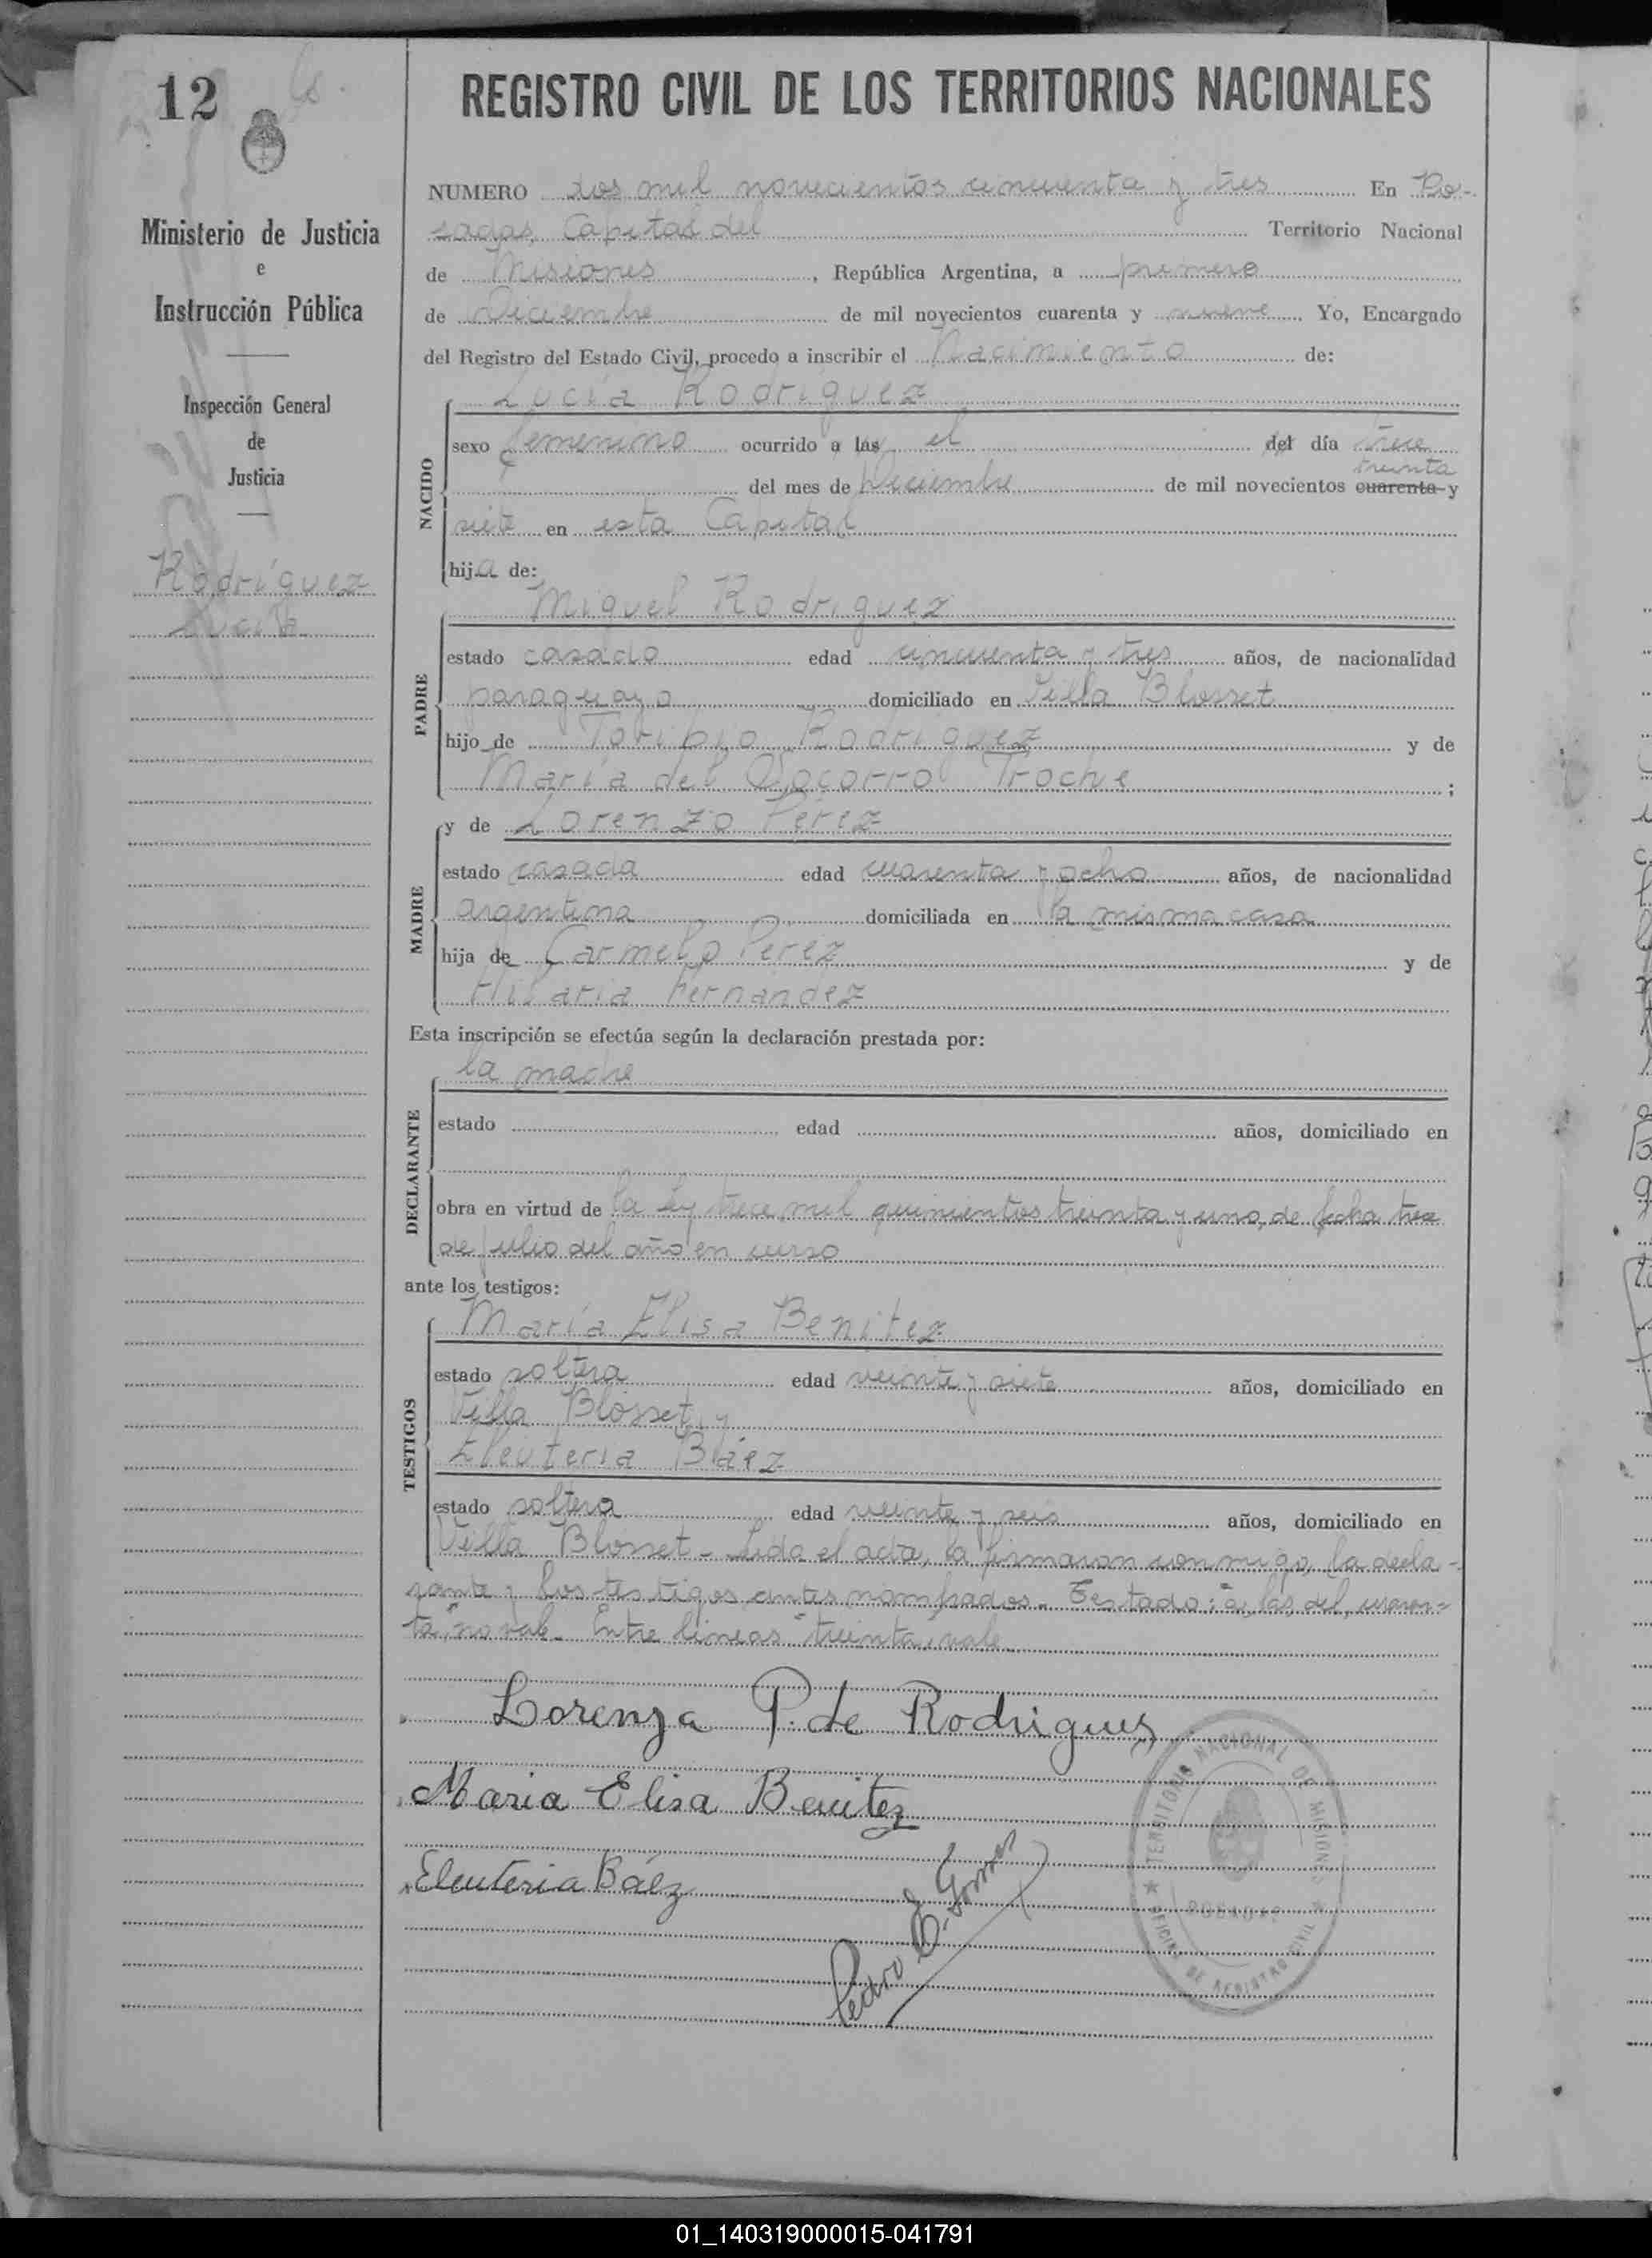 12
Ministerio de Justicia
e
Instrucción Pública
Inspección General
de
Justicia
Rodríguez
Lucía
REGISTRO CIVIL DE LOS TERRITORIOS NACIONALES
NUMERO dos mil novecientos cincuenta y tres En Po-
sadas, Capital del Territorio Nacional
de Misiones, República Argentina, a primero
de Diciembre de mil novecientos cuarenta y nueve. Yo, Encargado
del Registro del Estado Civil, procedo a inscribir el Nacimiento de:
Lucía Rodríguez
NACIDO
sexo femenino ocurrido a las el del día trece
treinta
del mes de Diciembre de mil novecientos cuarenta y
siete en esta Capital
hija de:
Miguel Rodríguez
PADRE
estado casado edad cincuenta y tres años, de nacionalidad
paraguayo domiciliado en Villa Blosset
hijo de Toribio Rodríguez y de
María del Socorro Troche;
MADRE
y de Lorenza Pérez
estado casada edad cuarenta y ocho años, de nacionalidad
argentina domiciliada en la misma casa
hija de Carmelo Pérez y de
Hilaria Fernández
Esta inscripción se efectúa según la declaración prestada por:
la madre
DECLARANTE
estado edad años, domiciliado en
obra en virtud de la ley trece mil quinientos treinta y uno, de fecha trece
de julio del año en curso
ante los testigos:
María Elisa Benitez
TESTIGOS
estado soltera edad veinte y siete años, domiciliado en
Villa Blosset, y
Eleuteria Báez
estado soltera edad veinte y seis años, domiciliado en
Villa Blosset - Leída el acta, la firmaron conmigo, la decla-
rante y los testigos antes nombrados. Testado: "a, las, del, cuaren-
ta", no vale. Entre líneas "treinta", vale
Lorenza P. de Rodriguez
Maria Elisa Benitez
Eleuteria Báez
Pedro
TERRITORIO NACIONAL DE MISIONES
POSADAS
OFICINA DE REGISTRO CIVIL
01_140319000015-041791